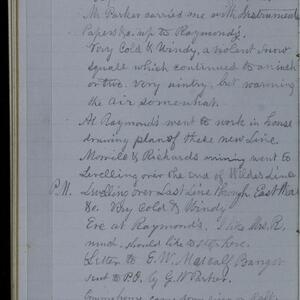 Mr Parker carried me with Instruments
Papers &c. up to Raymonds.
Very Cold & Windy, a violent snow
squall which continued to an inch
or two. very wintry, but warming
the air somewhat.
At Raymonds went to work in house
drawing plan of these new Line.
Morrill & Richards went to
Levelling over the end of Wildes Line
P.M. Levelling over Last Line through East
&c. Very Cold & Windy
Eve at Raymond's. I like Mrs. R.
much. should like to stop here.
Letter to E. W. Metcalf Bangor
sent to P.O. by G. W. Parker.